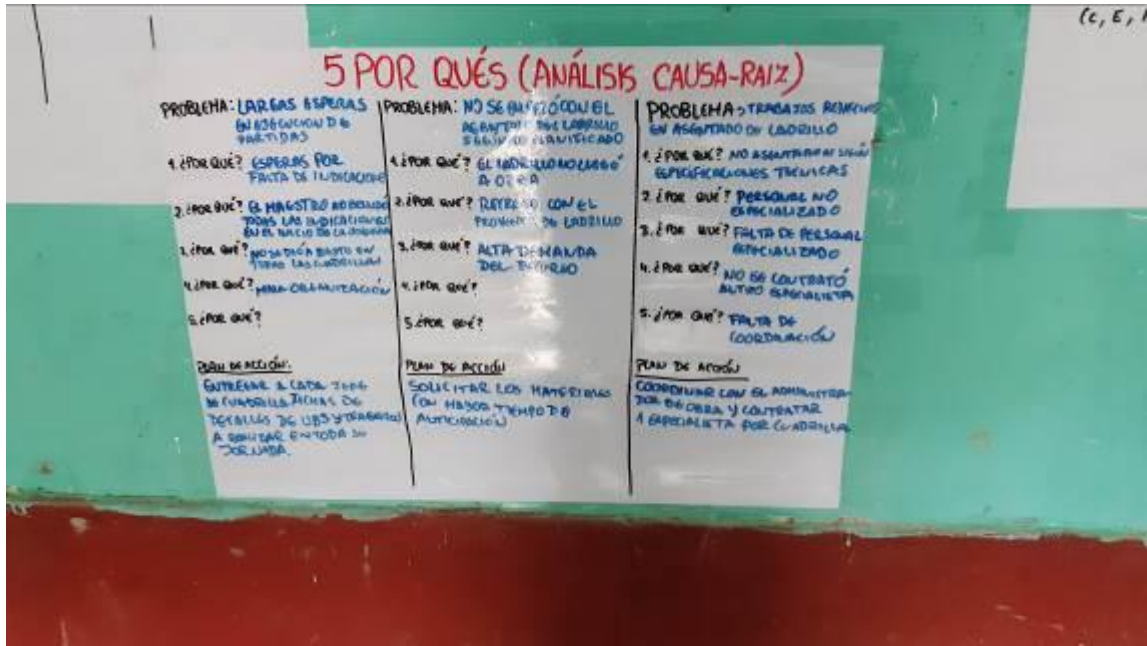 (C, E,
5 POR QUÉS (ANÁLISIS CAUSA-RAIZ)
PROBLEMA: LARGAS ESPERAS
EN EJECUCION DE
PARTIDAS
1. ¿POR QUÉ? ESPERAS POR
FALTA DE INDICACIONE
2. ¿POR QUÉ? EL MAESTRO NO
TODAS LAS INDICACIONES
EN EL INICIO DE LA JORNADA
3. ¿POR QUÉ? NO
TODAS LAS CUADRILLAS
4. ¿POR QUÉ? MALA ORGANIZACIÓN
5. ¿POR QUÉ?
PLAN DE ACCIÓN:
ENTREGAR A CADA
DE CUADRILLA FICHAS DE
DETALLES DE UBS Y TRABAJOS
A REALIZAR EN TODA SU
JORNADA.
PROBLEMA: NO SE CON EL
ASENTADO DEL LADRILLO
SEGÚN LO PLANIFICADO
1. ¿POR QUÉ? EL LADRILLO NO LLEGÓ
A OBRA
2. ¿POR QUÉ? RETRASO CON EL
DE LADRILLO
3. ¿POR QUÉ? ALTA DEMANDA
DEL
4. ¿POR QUÉ?
5. ¿POR QUÉ?
PLAN DE ACCIÓN
SOLICITAR LOS MATERIALES
CON MAYOR TIEMPO DE
ANTICIPACIÓN
PROBLEMA: TRABAJOS REHECHOS
EN ASENTADO DE LADRILLO
1. ¿POR QUÉ? NO SEGÚN
ESPECIFICACIONES TECNICAS
2. ¿POR QUÉ? PERSONAL NO
ESPECIALIZADO
3. ¿POR QUÉ? FALTA DE PERSONAL
ESPECIALIZADO
4. ¿POR QUÉ? NO SE CONTRATÓ
ESPECIALISTA
5. ¿POR QUÉ? FALTA DE
COORDINACIÓN
PLAN DE ACCIÓN
COORDINAR CON EL ADMINISTRA-
DOR DE OBRA Y CONTRATAR
1 ESPECIALISTA POR CUADRILLA